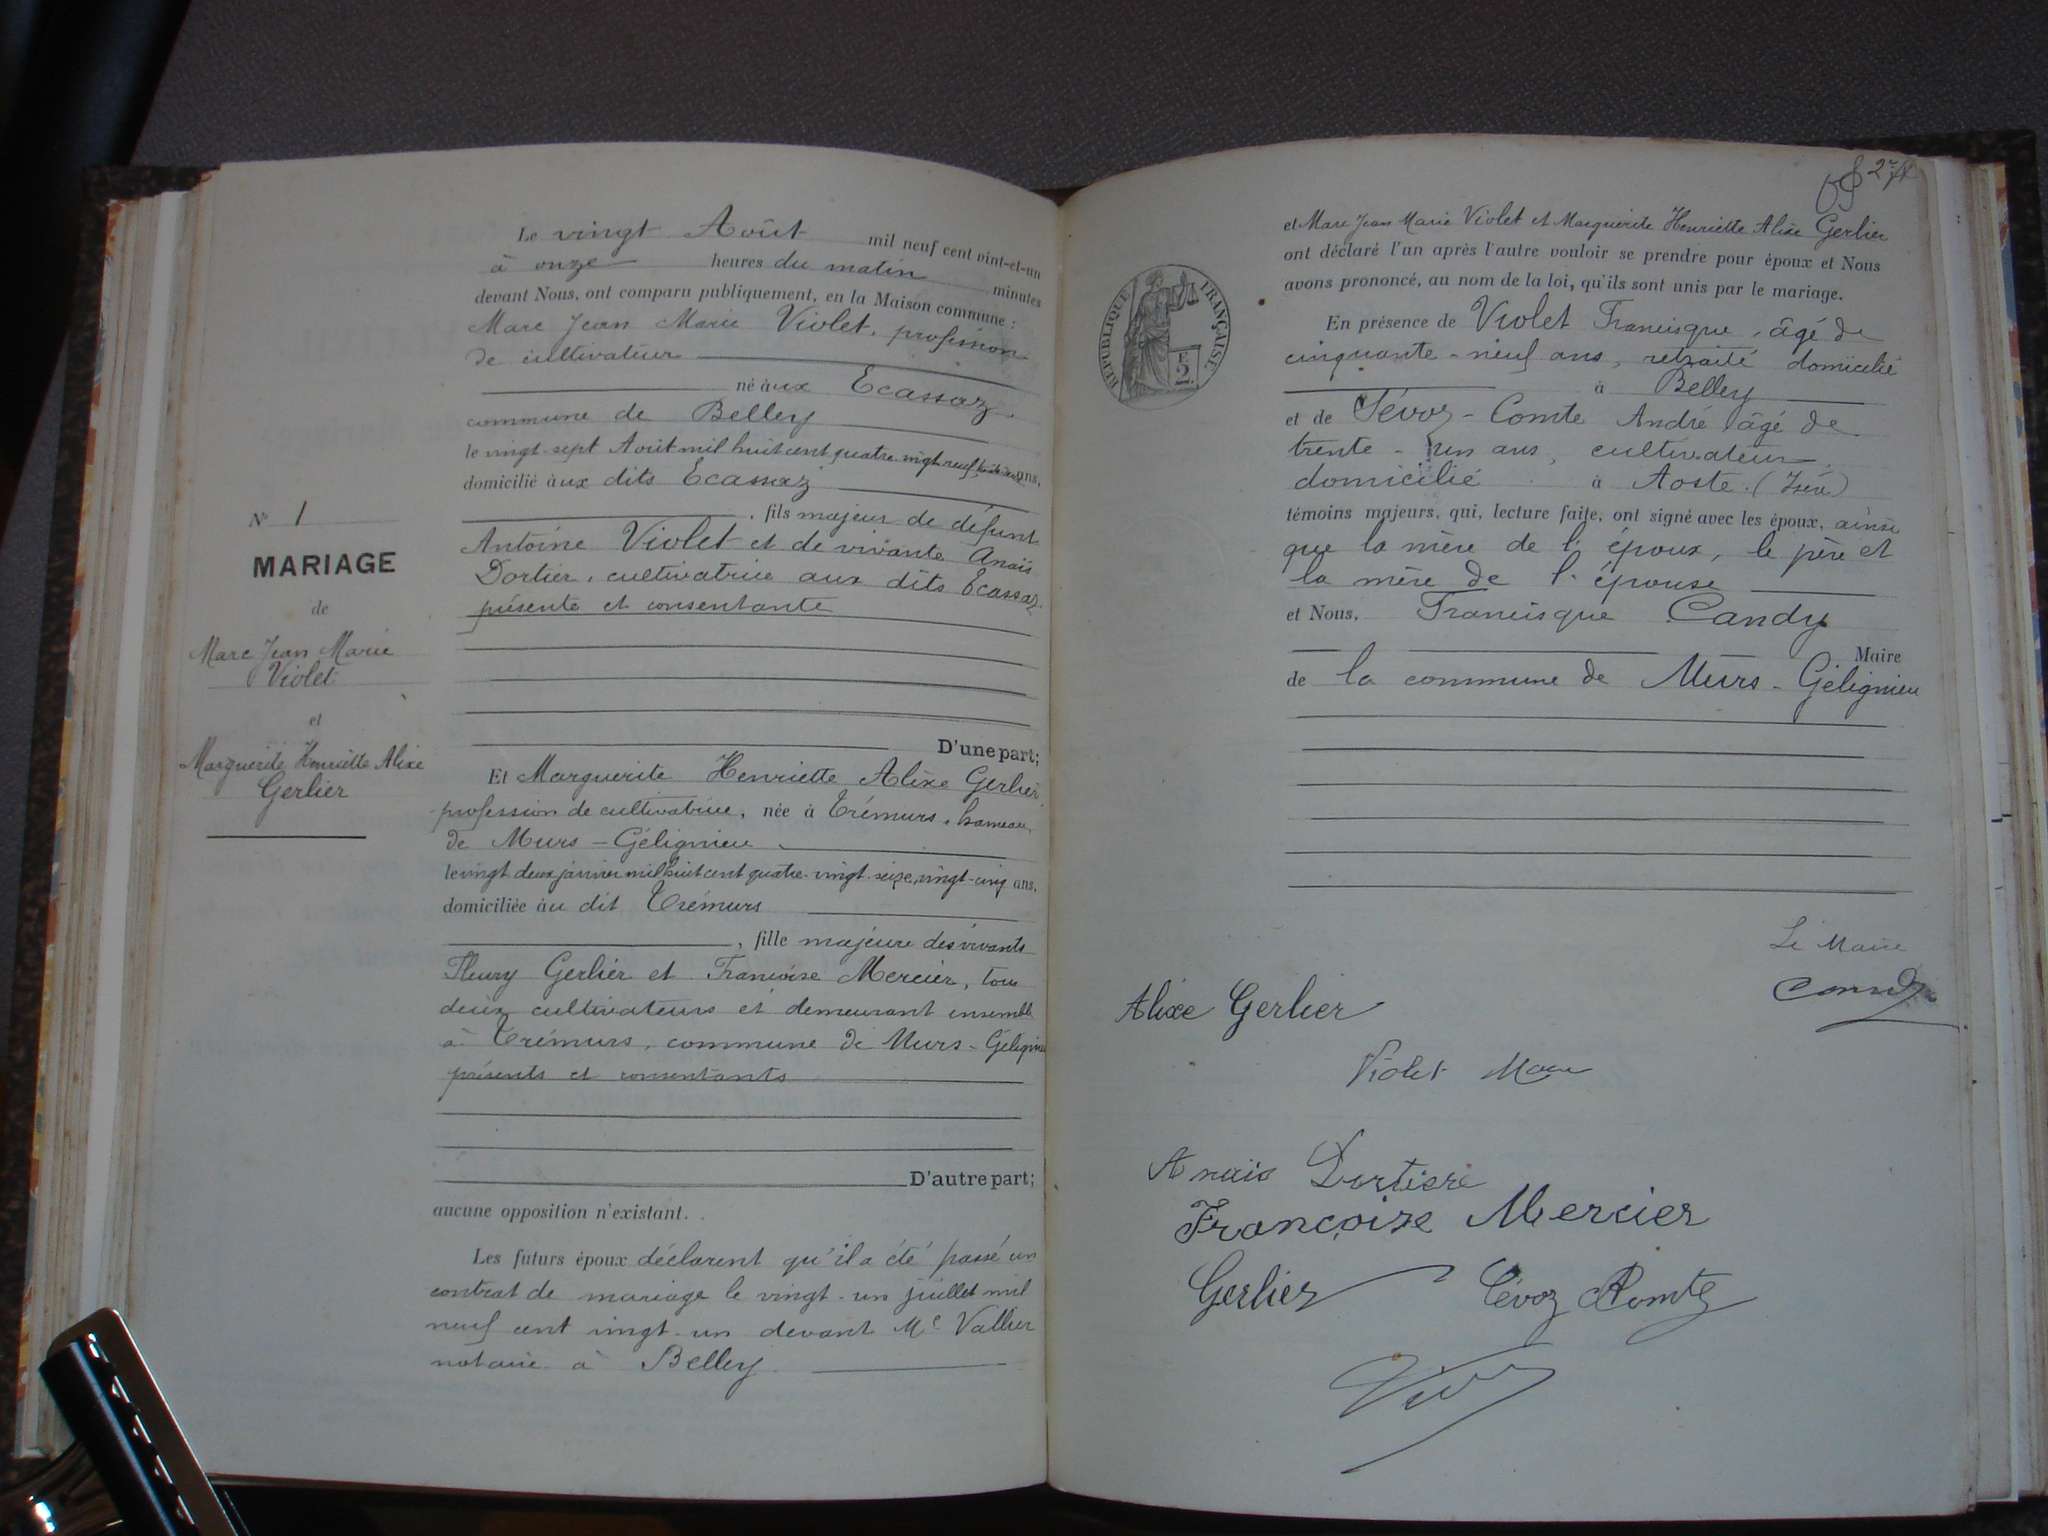 Le vingt Août mil neuf cent vint-et-un
à onze heures du matin minutes
devant Nous, ont comparu publiquement, en la Maison commune :
Marc Jean Marie Violet, profession
de cultivateur
né àux Ecassaz
commune de Belley
le vingt-sept Août mil huit cent quatre-vingt-neuf, ans,
domicilié àux dits Ecassaz
, fils majeur de défunt
Antoine Violet et de vivante Anaïs
Dortier, cultivatrice aux dits Ecassaz
présente et consentante
D'une part;
Et Marguerite Henriette Alixe Gerlier,
profession de cultivatrice, née à Trémurs, hameau
de Murs-Gélignieu
le vingt deux janvier mil huit cent quatre-vingt-seize, vingt-cinq ans,
domiciliée àu dit Trémurs
, fille majeure des vivants
Fleury Gerlier et Françoise Mercier, tous
deux cultivateurs et demeurant ensemble
à Trémurs, commune de Murs-Gélignieu
présents et consentants
D'autre part;
aucune opposition n'existant.
Les futurs époux déclarent qu'il a été passé un
contrat de mariage le vingt-un juillet mil
neuf cent vingt-un devant Me Vallier
notaire à Belley
N° 1
MARIAGE
de
Marc Jean Marie
Violet
et
Marguerite Henriette Alixe
Gerlier
27
et Marc Jean Marie Violet et Marguerite Henriette Alixe Gerlier
ont déclaré l'un après l'autre vouloir se prendre pour époux et Nous
avons prononcé, au nom de la loi, qu'ils sont unis par le mariage.
REPUBLIQUE FRANÇAISE
F
2
En présence de Violet Francisque, âgé de
cinquante-neuf ans, retraité domicilié
à Belley
et de Tévoz-Comte André âgé de
trente-un ans, cultivateur,
domicilié à Aoste (Isère)
témoins majeurs, qui, lecture faite, ont signé avec les époux, ainsi
que la mère de l'époux, le père et
la mère de l'épouse
et Nous, Francisque Candy
Maire
de la commune de Murs-Gélignieu
Le Maire
Candy
Alixe Gerlier
Violet Marc
Anais Dortière
Françoise Mercier
Gerlier Tévoz Comte